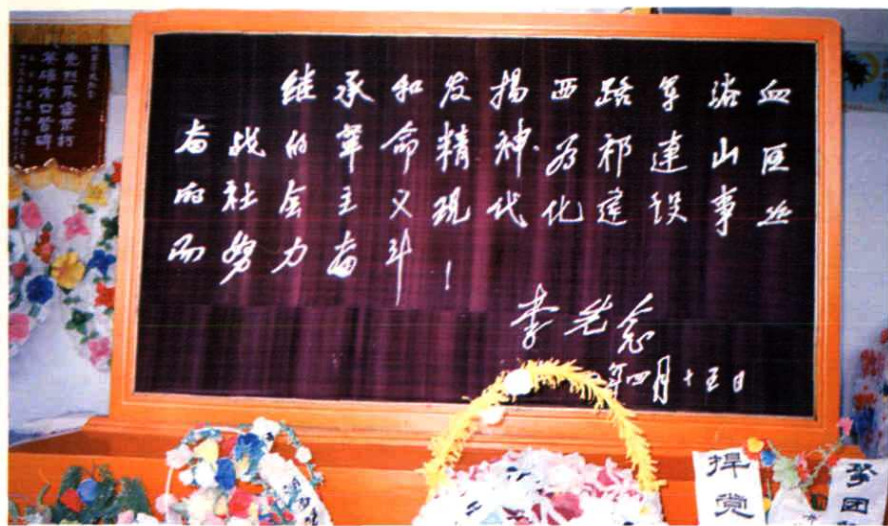 继承和发扬西路军浴血
奋战的革命精神.为祁连山区
的社会主义现代化建设事业
而努力奋斗!
李先念
年四月十五日
捍党
团